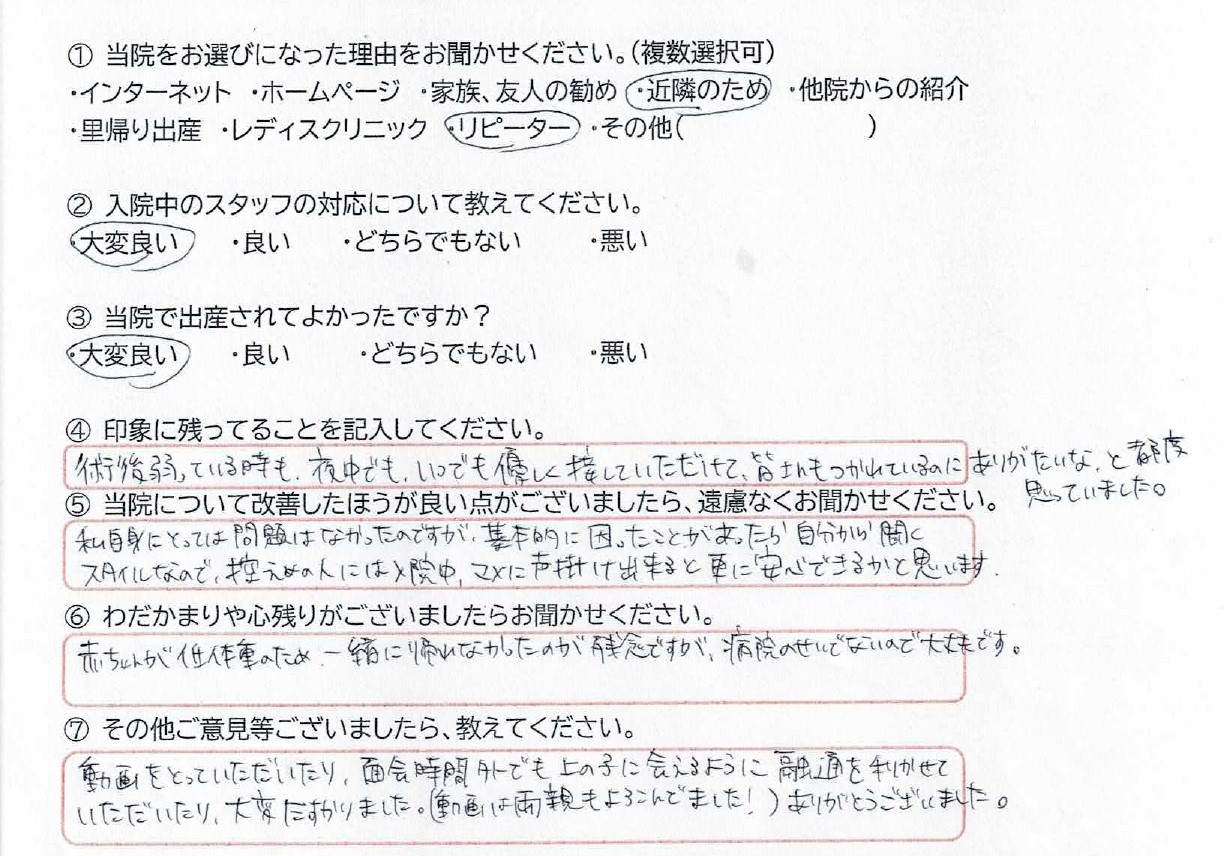 ① 当院をお選びになった理由をお聞かせください。(複数選択可)
・インターネット ・ホームページ ・家族、友人の勧め ・近隣のため ・他院からの紹介
・里帰り出産 ・レディスクリニック ・リピーター ・その他( )
② 入院中のスタッフの対応について教えてください。
・大変良い ・良い ・どちらでもない ・悪い
③ 当院で出産されてよかったですか？
・大変良い ・良い ・どちらでもない ・悪い
④ 印象に残ってることを記入してください。
術後弱っている時も、夜中でも、いつでも優しく接していただけて、皆さんもつかれているのにありがたいな、と都度
思っていました。
⑤ 当院について改善したほうが良い点がございましたら、遠慮なくお聞かせください。
私自身にとっては問題はなかったのですが、基本的に困ったことがあったら自分から聞く
スタイルなので、控えめの人には入院中、マメに声掛け出来ると更に安心できるかと思います.
⑥ わだかまりや心残りがございましたらお聞かせください。
赤ちゃんが低体重のため、一緒に帰れなかったのが残念ですが、病院のせいでないので大丈夫です。
⑦ その他ご意見等ございましたら、教えてください。
動画をとっていただいたり、面会時間外でも上の子に会えるように融通を利かせて
いただいたり、大変たすかりました。(動画は両親もよろこんでました！)ありがとうございました。